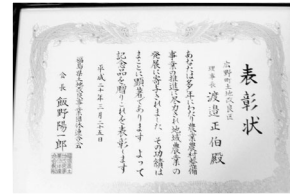 表彰状
広野町土地改良区
理事長 渡邉正伯殿
あなたは多年にわたり農業農村整備
事業の推進に尽力され地域農業の
発展に寄与してこられました その功績は
まことに顕著であります よって
記念品を贈りこれを表彰します
平成二十年三月二十五日
福島県土地改良事業団体連合会
会長 飯野陽一郎